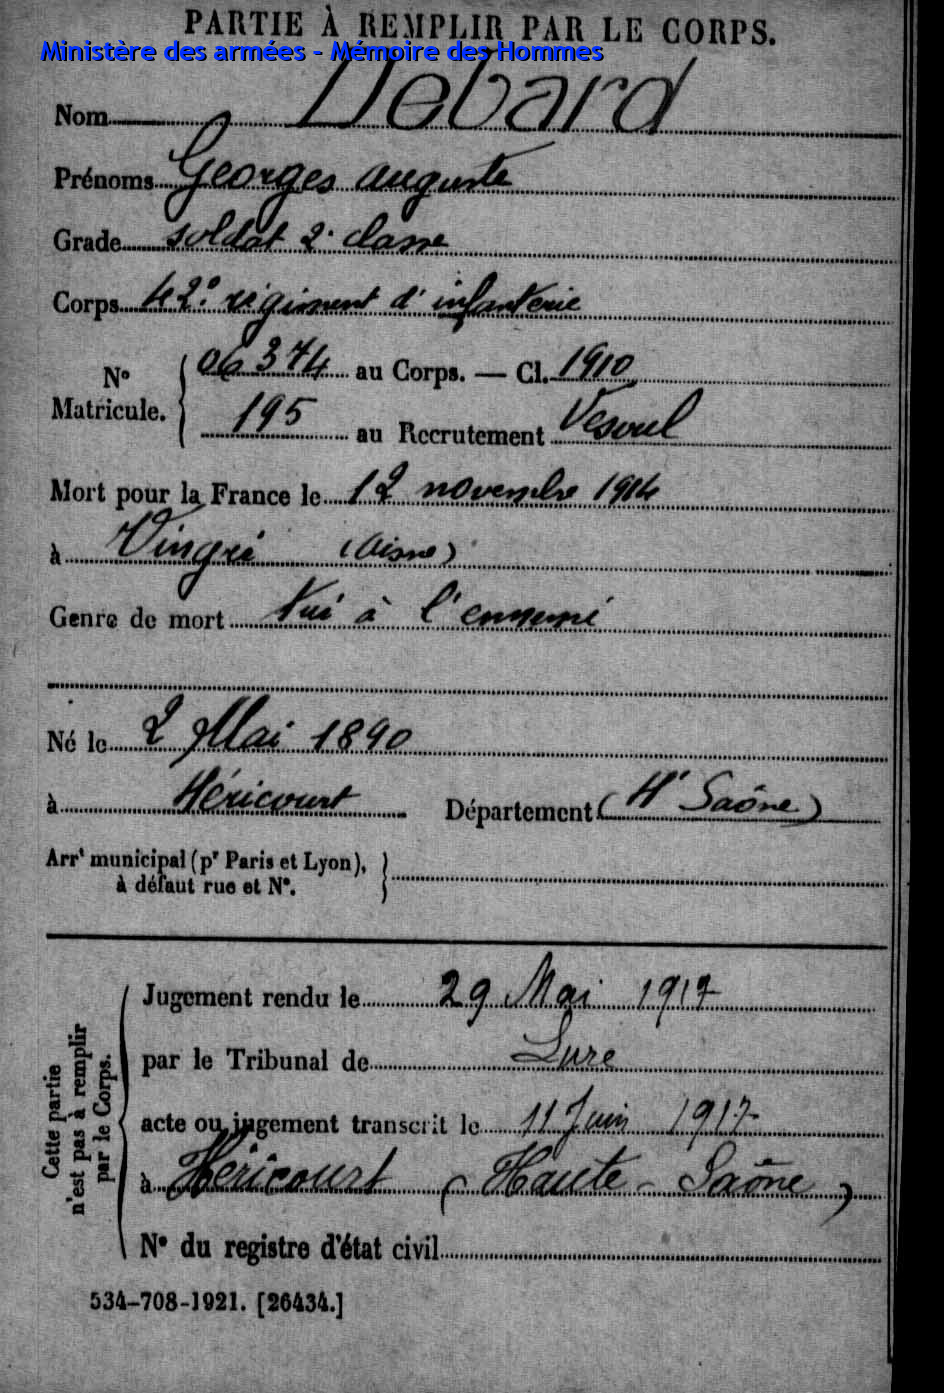 PARTIE À REMPLIR PAR LE CORPS.
Ministère des armées - Mémoire des Hommes
Nom Debard
Prénoms Georges auguste
Grade soldat 2e classe
Corps 42e régiment d'infanterie
No Matricule. 06374 au Corps. — Cl. 1910
195 au Recrutement Vesoul
Mort pour la France le 12 novembre 1914
à Vingré (Aisne)
Genre de mort Tué à l'ennemi
Né le 2 Mai 1890
à Héricourt Département (Hte Saône)
Arrt municipal (pr Paris et Lyon),
à défaut rue et No.
Cette partie
n'est pas à remplir
par le Corps.
Jugement rendu le 29 Mai 1917
par le Tribunal de Lure
acte ou jugement transcrit le 11 Juin 1917
à Héricourt (Haute-Saône)
No du registre d'état civil
534-708-1921. [26434.]